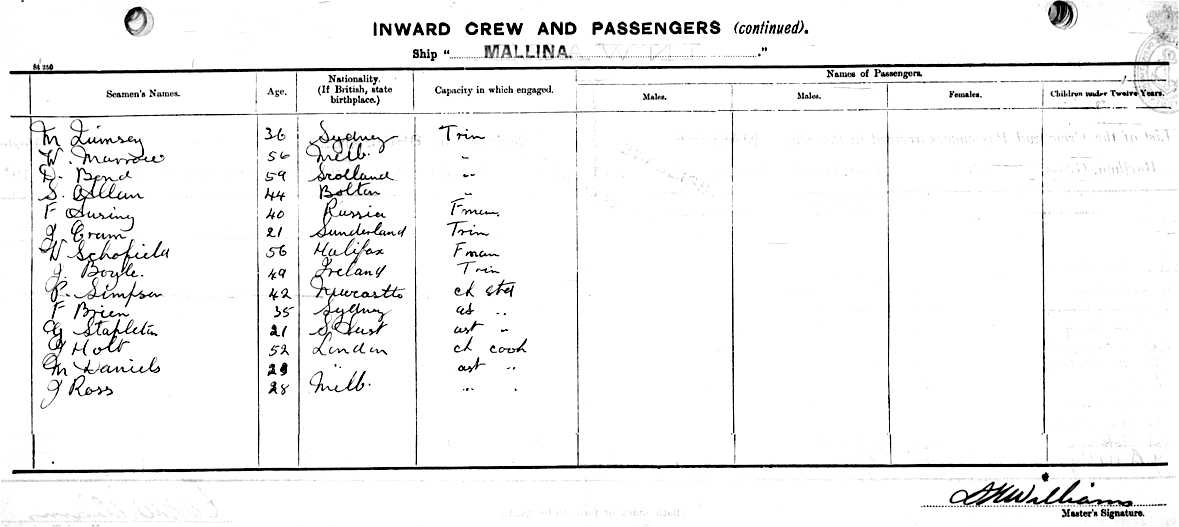 INWARD CREW AND PASSENGERS (continued).
Ship "MALLINA."
St 250
Seamen's Names. Age. Nationality. (If British, state birthplace.) Capacity in which engaged. Names of Passengers.
Males. Males. Females. Children under Twelve Years.
M 36 Sydney Trin
W. Murrow 56 Melb. "
D. Bond 59 Scotland "
S. Allan 44 Bolton "
F 40 Russia Fman
J Cram 21 Sunderland Trin
W Schofield 56 Halifax Fman
J. Boyle. 49 Ireland Trin
P. Simpson 42 Newcastle ch std
F Brien 35 Sydney as "
G Stapleton 21 S Aust ast "
J Holt 52 London ch cook
M Daniels 23 " ast "
J Ross 28 Melb. " "
Williams
Master's Signature.